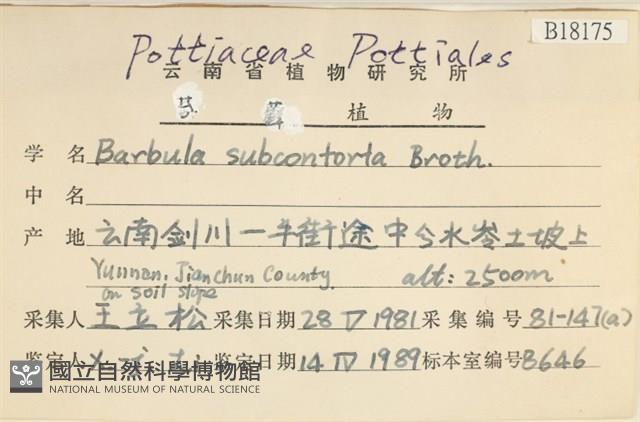 B18175
Pottiaceae Pottiales
云南省植物研究所
苔藓植物
学名 Barbula subcontorta Broth.
中名
产地 云南剑川一羊街途中分水岺土坡上
Yunnan. Jianchun County. alt: 2500m
on soil slope
采集人 王立松 采集日期 28 IV 1981 采集编号 81-147(a)
鉴定人 鉴定日期 14 IV 1989 标本室编号 8646
國立自然科學博物館
NATIONAL MUSEUM OF NATURAL SCIENCE